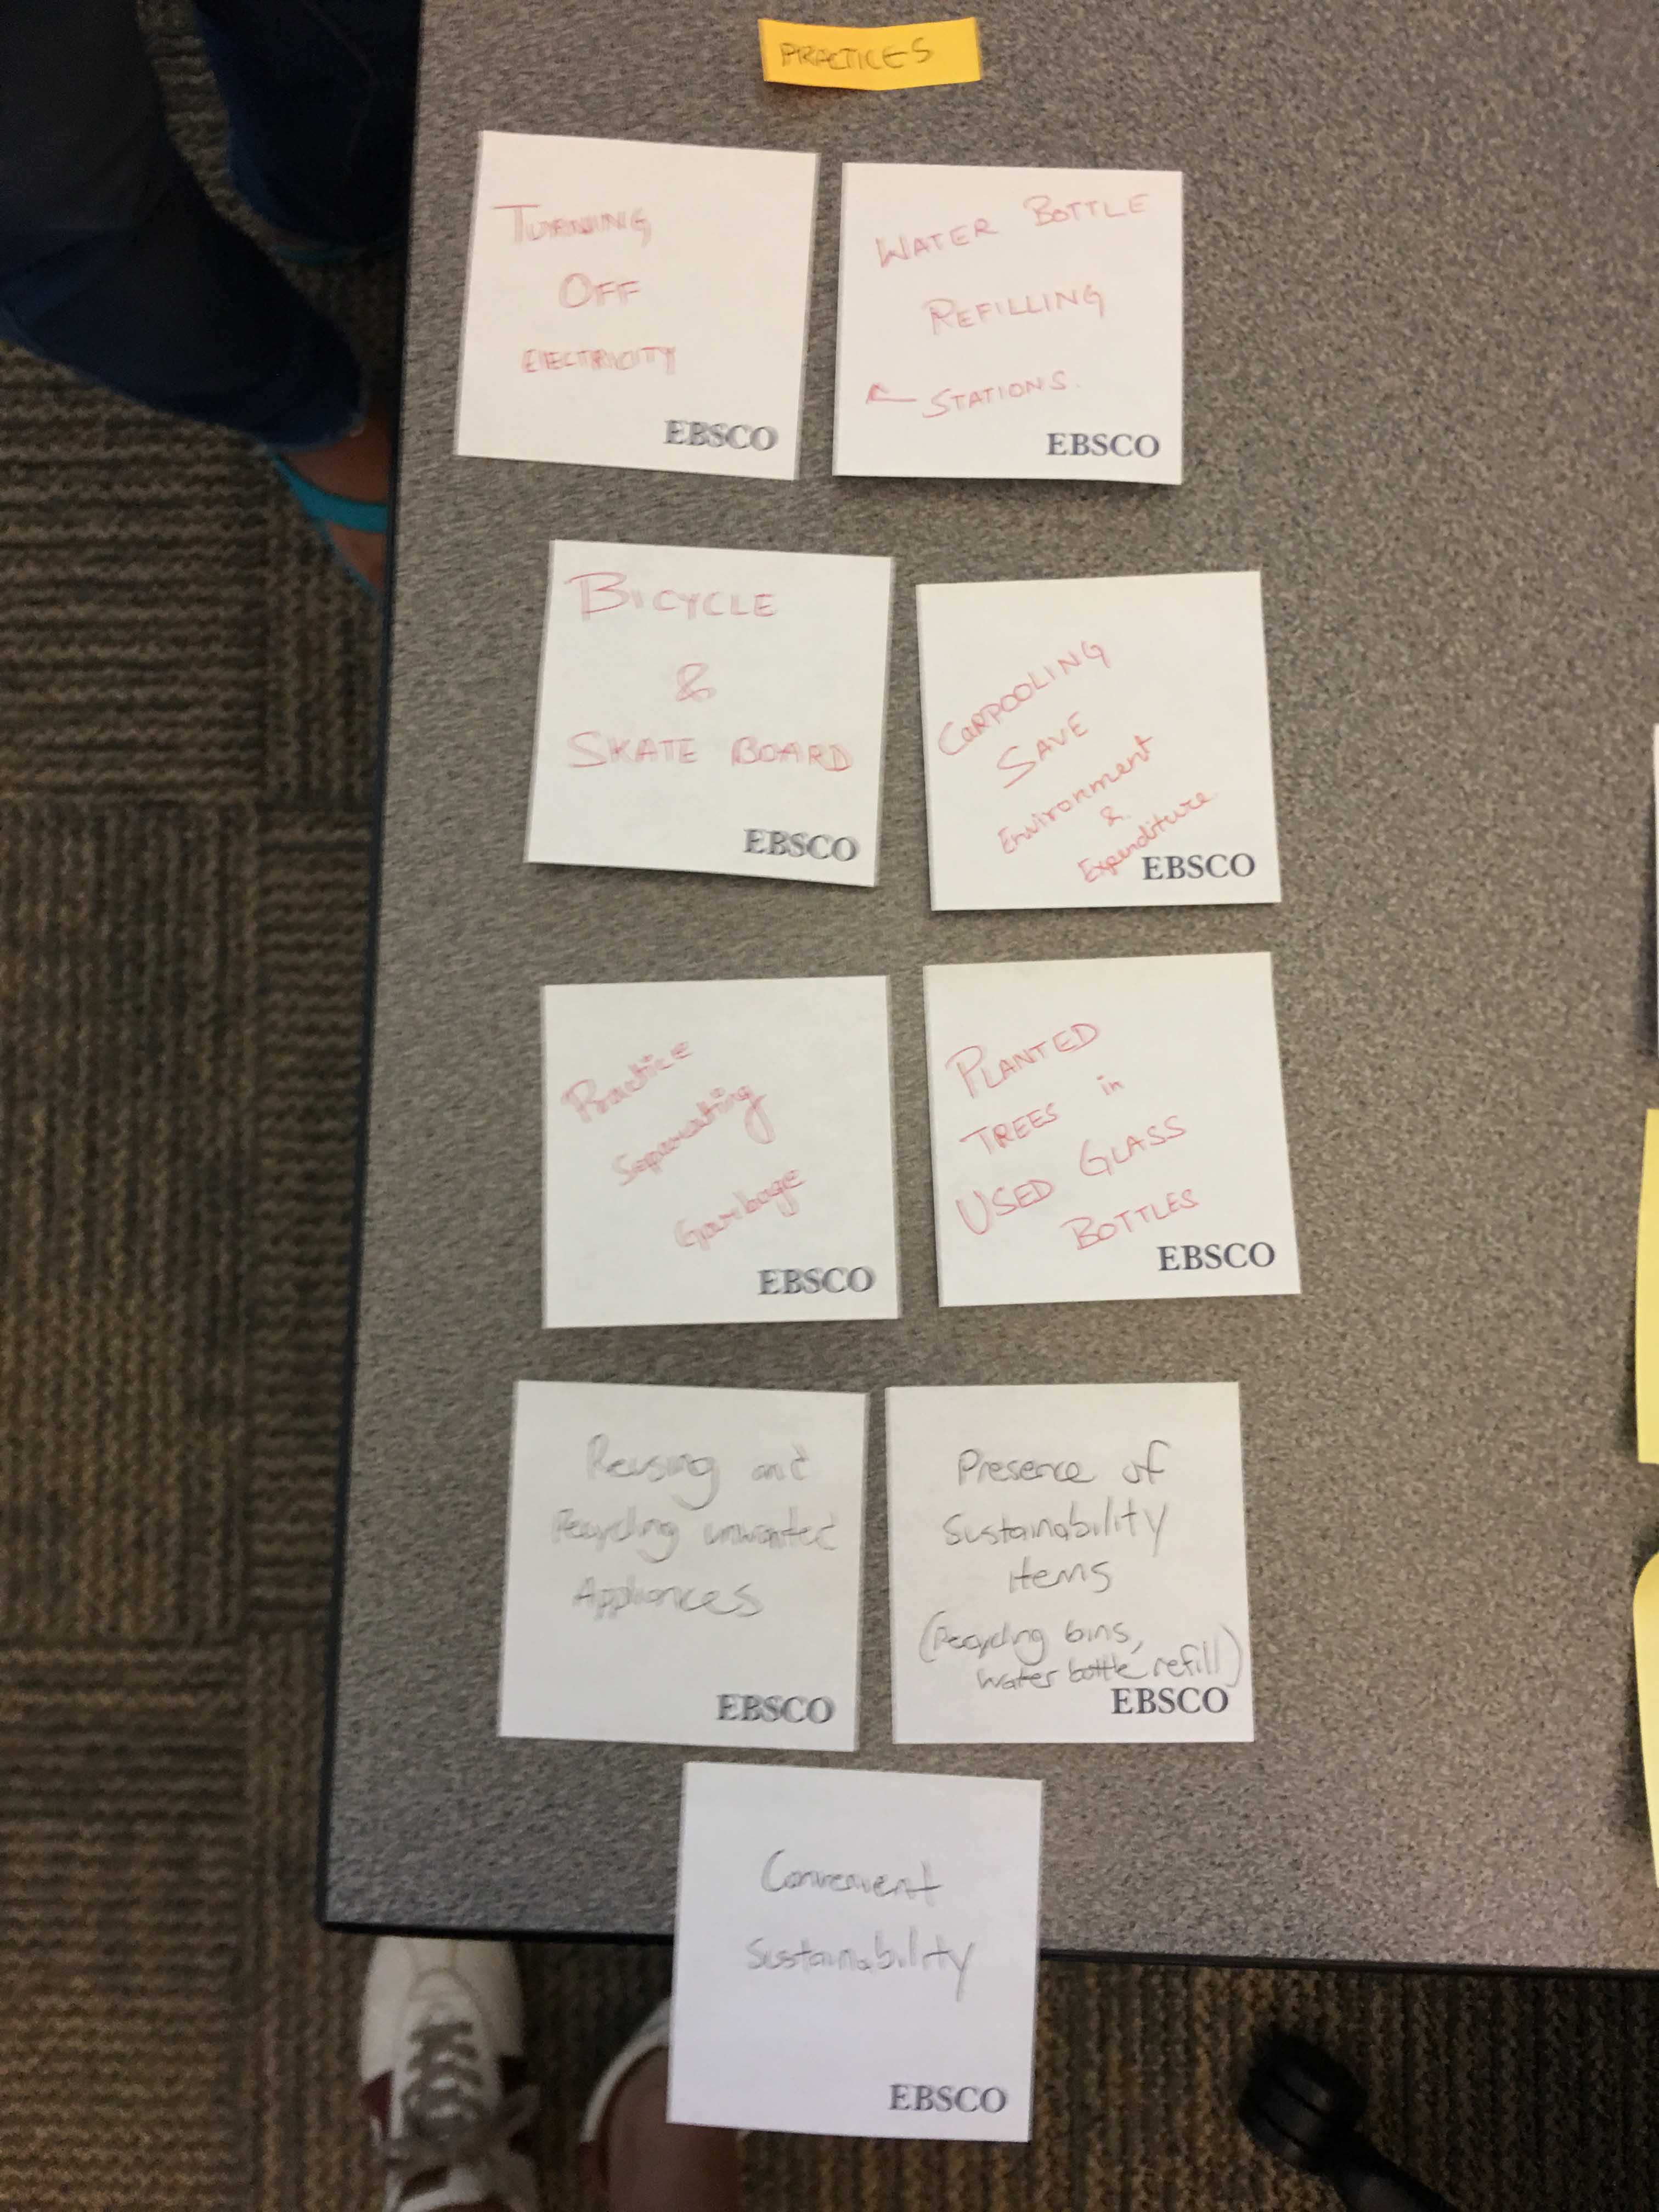 PRACTICES
TURNING
OFF
ELECTRICITY
EBSCO
WATER BOTTLE
REFILLING
STATIONS.
EBSCO
BICYCLE
&
SKATE BOARD
EBSCO
CARPOOLING
SAVE
Environment
&
Expenditure
EBSCO
Practice
Separating
Garbage
EBSCO
PLANTED
TREES in
USED GLASS
BOTTLES
EBSCO
Reusing and
Recycling unwanted
Appliances
EBSCO
Presence of
Sustainability
items
(Recycling bins,
water bottle refill)
EBSCO
Convenient
Sustainability
EBSCO